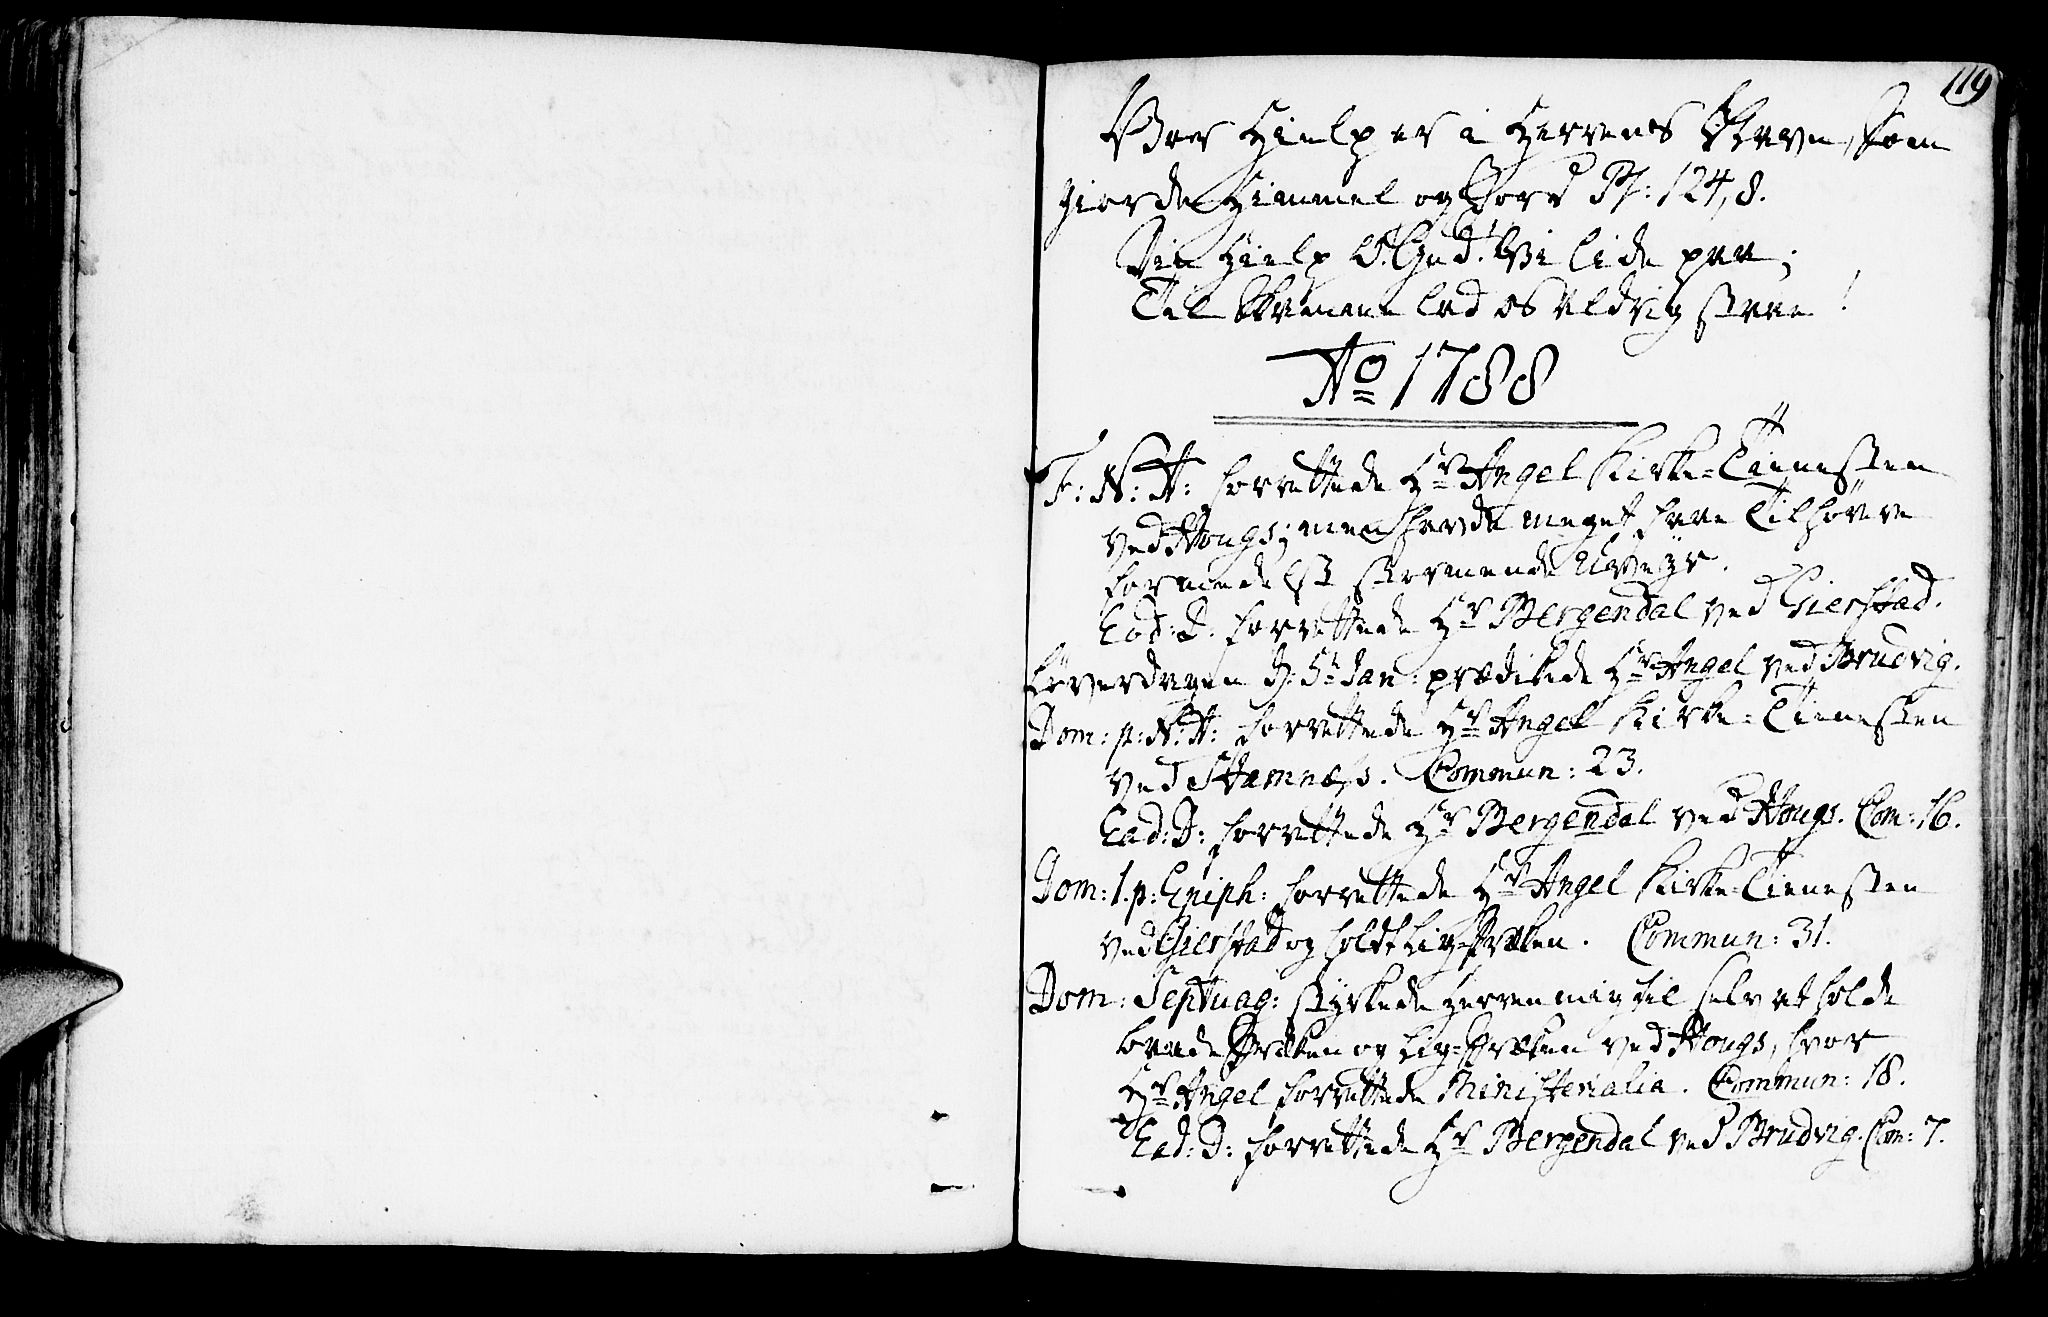 119
Vor Hielp er i Herrens Navn, som
giorde Himmel og Jord Ps: 124,8.
Din Hielp O! Gud! Vi lide paa;
Til Skamme lad os aldrig staae!
Ao 1788
F: N: A: forrettede Hr Angel Kirke-Tienesten
ved Hougs; men havde meget faae Tilhörere
formedelst stormende Uveyr.
Eod: D: forrettede Hr Bergendal ved Gierstad.
Löverdagen d: 5te Jan: prædikede Hr Angel ved Brudvig.
Dom: p: N: A: forrettede Hr Angel Kirke-Tienesten
ved Stamnæss. Commun: 23.
Ead: D: forrettede Hr Bergendal ved Hougs. Com: 16.
Dom: 1. p: Epiph: forrettede Hr Angel Kirke-Tienesten
ved Gierstad og holdt Lig-Præken. Commun: 31.
Dom: Septuag: styrkede Herren mig til selv at holde
baade Præken og Lig-Præken ved Hougs, hvor
Hr Angel forrettede Ministerialia. Commun: 18.
Ead: D: forrettede Hr Bergendal ved Brudvig. Com: 7.